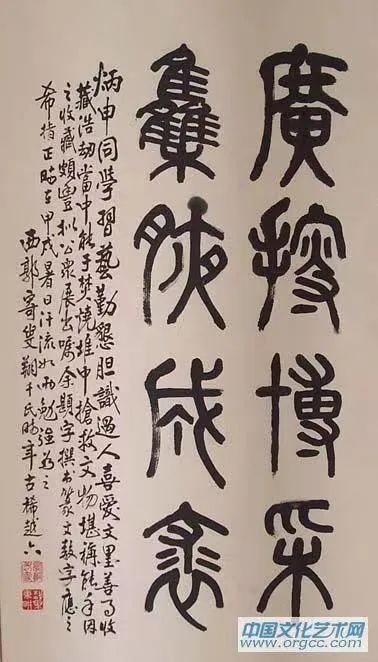 廣搜博采
集腋成裘
炳申同學習藝勤懇胆識過人喜愛文墨善於收
藏浩劫當中能于焚燒堆中搶救文物堪稱能手因
之收藏頗豐拟公眾展出囑余題字撰書篆文數字應之
希指正時在甲戌暑日汗流如雨勉強為之
西郭寄叟翔千氏時年古稀越六
中国文化艺术网
www.orgcc.com